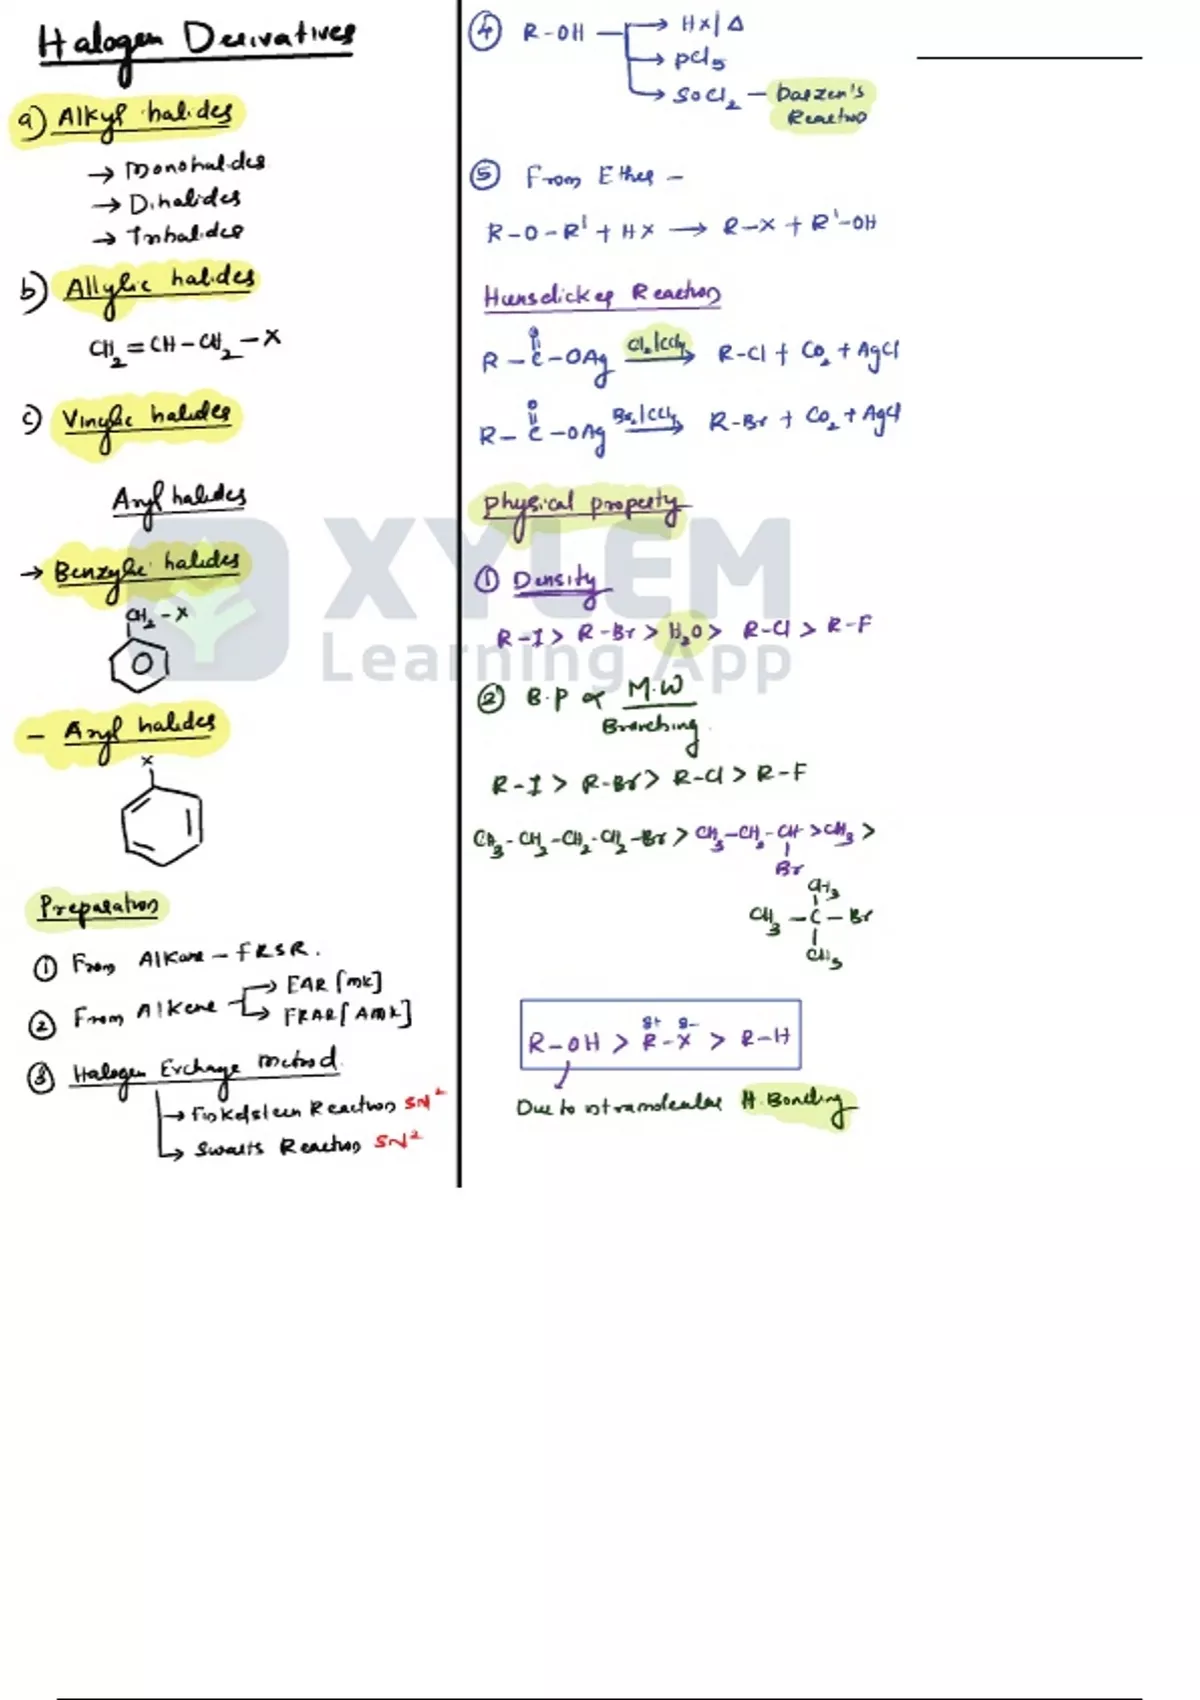 Halogen Derivatives
a) Alkyl halides
→ Monohalides
→ Dihalides
→ Trihalides
b) Allylic halides
CH₂=CH-CH₂-X
c) Vinylic halides
Aryl halides
→ Benzylic halides
CH₂-X
- Aryl halides
X
Preparation
① From Alkane - FRSR.
② From Alkene → EAR [MK]
→ FRAR [AMK]
③ Halogen Exchange Method
→ Finkelstein Reaction SN²
→ Swarts Reaction SN²
④ R-OH → HX/Δ
→ PCl₅
→ SOCl₂ - Darzen's
Reaction
⑤ From Ether -
R-O-R' + HX → R-X + R'-OH
Hunsdicker Reaction
O
R-C-OAg Cl₂/CCl₄ → R-Cl + CO₂ + AgCl
O
R-C-OAg Br₂/CCl₄ → R-Br + CO₂ + AgCl
Physical property
① Density
R-I > R-Br > H₂O > R-Cl > R-F
② B.P ∝ M.W
Branching
R-I > R-Br > R-Cl > R-F
CH₃-CH₂-CH₂-CH₂-Br > CH₃-CH₂-CH>CH₃ >
Br
CH₃
CH₃-C-Br
CH₃
δ+ δ-
R-OH > R-X > R-H
Due to intramolecular H.Bonding
XYLEM
Learning App